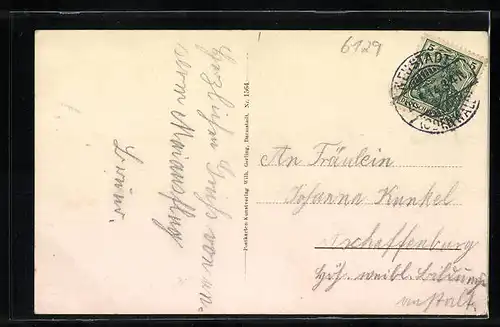 6129
5 5
NEUSTADT
(ODENWAL
Herzlichen Gruß von un-
serm Maiausflug
Postkarten-Kunstverlag Wilh. Gerling, Darmstadt. Nr. 1564.
An Fräulein
Johanna Kunkel
Aschaffenburg
Höh. weibl. Bildungs
anstalt.